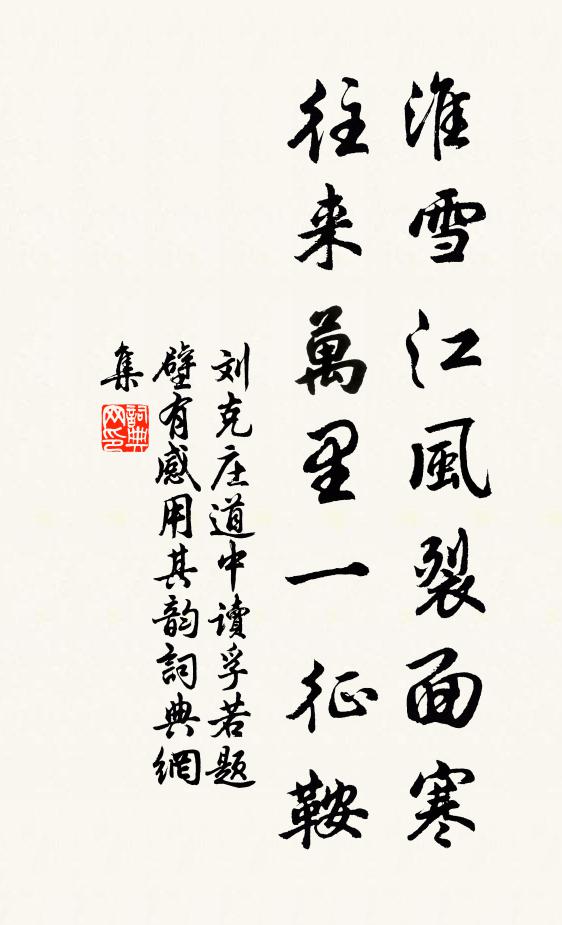 淮雪江風裂面寒
往来萬里一征鞍
刘克庄道中讀孚若題
壁有感用其韵詞典網
集
詞典
网印